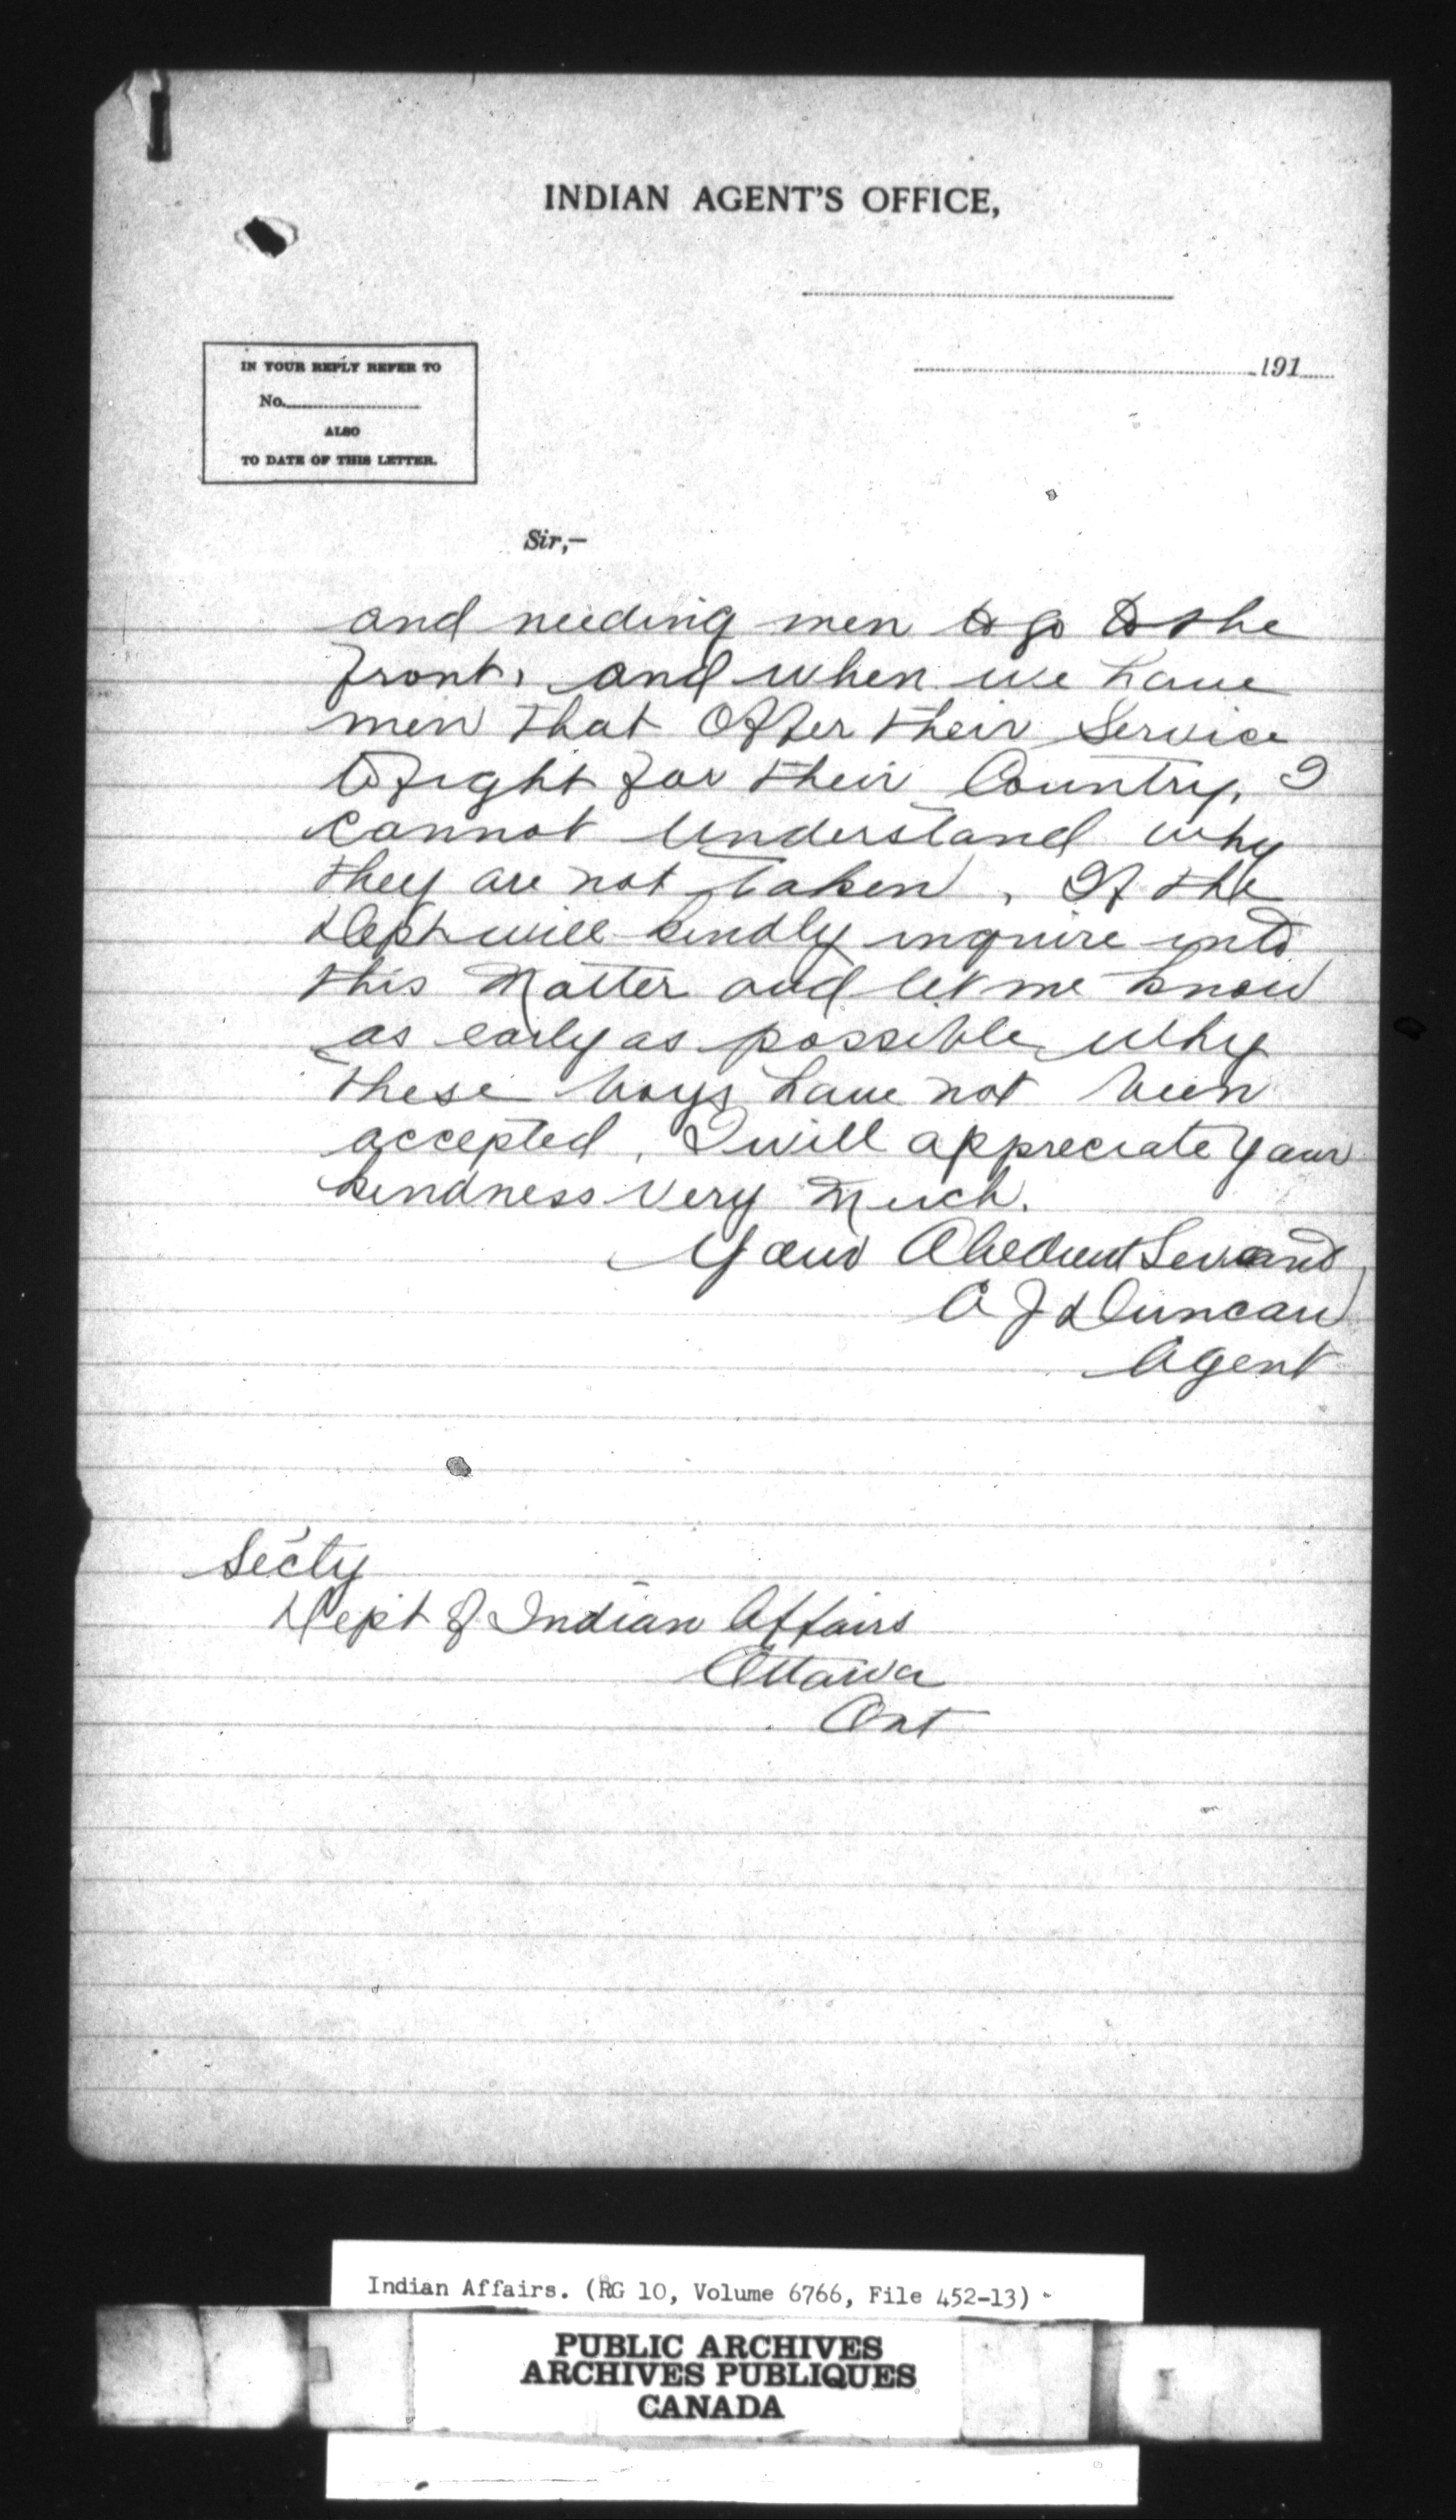 INDIAN AGENT'S OFFICE,
191
IN YOUR REPLY REFER TO
No.
ALSO
TO DATE OF THIS LETTER.
Sir,—
and needing men to go to the
front, and when we have
men that Offer their Service
to fight for their Country, I
cannot understand why
they are not taken, If the
Dept will kindly inquire into
this Matter and let me know
as early as possible why
these boys have not been
accepted, I will appreciate your
kindness very much.
Your Obedient Servant,
A J Duncan
Agent
Secty
Dept of Indian Affairs
Ottawa
Ont
Indian Affairs. (RG 10, Volume 6766, File 452-13)
PUBLIC ARCHIVES
ARCHIVES PUBLIQUES
CANADA